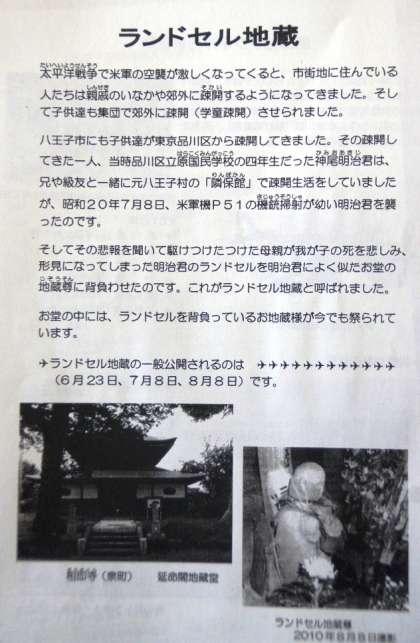 ランドセル地蔵
太平洋戦争で米軍の空襲が激しくなってくると、市街地に住んでいる
人たちは親戚のいなかや郊外に疎開するようになってきました。そし
て子供達も集団で郊外に疎開（学童疎開）させられました。
八王子市にも子供達が東京品川区から疎開してきました。その疎開し
てきた一人、当時品川区立原国民学校の四年生だった神尾明治君は、
兄や級友と一緒に元八王子村の「隣保館」で疎開生活をしていました
が、昭和２０年７月８日、米軍機Ｐ５１の機銃掃射が幼い明治君を襲
ったのです。
そしてその悲報を聞いて駆けつけたつけた母親が我が子の死を悲しみ、
形見になってしまった明治君のランドセルを明治君によく似たお堂の
地蔵尊に背負わせたのです。これがランドセル地蔵と呼ばれました。
お堂の中には、ランドセルを背負っているお地蔵様が今でも祭られて
います。
✈ランドセル地蔵の一般公開されるのは　✈✈✈✈✈✈✈✈✈✈✈✈
（６月２３日、７月８日、８月８日）です。
（泉町）　延命閣地蔵堂
ランドセル地蔵様
２０１０年８月８日撮影